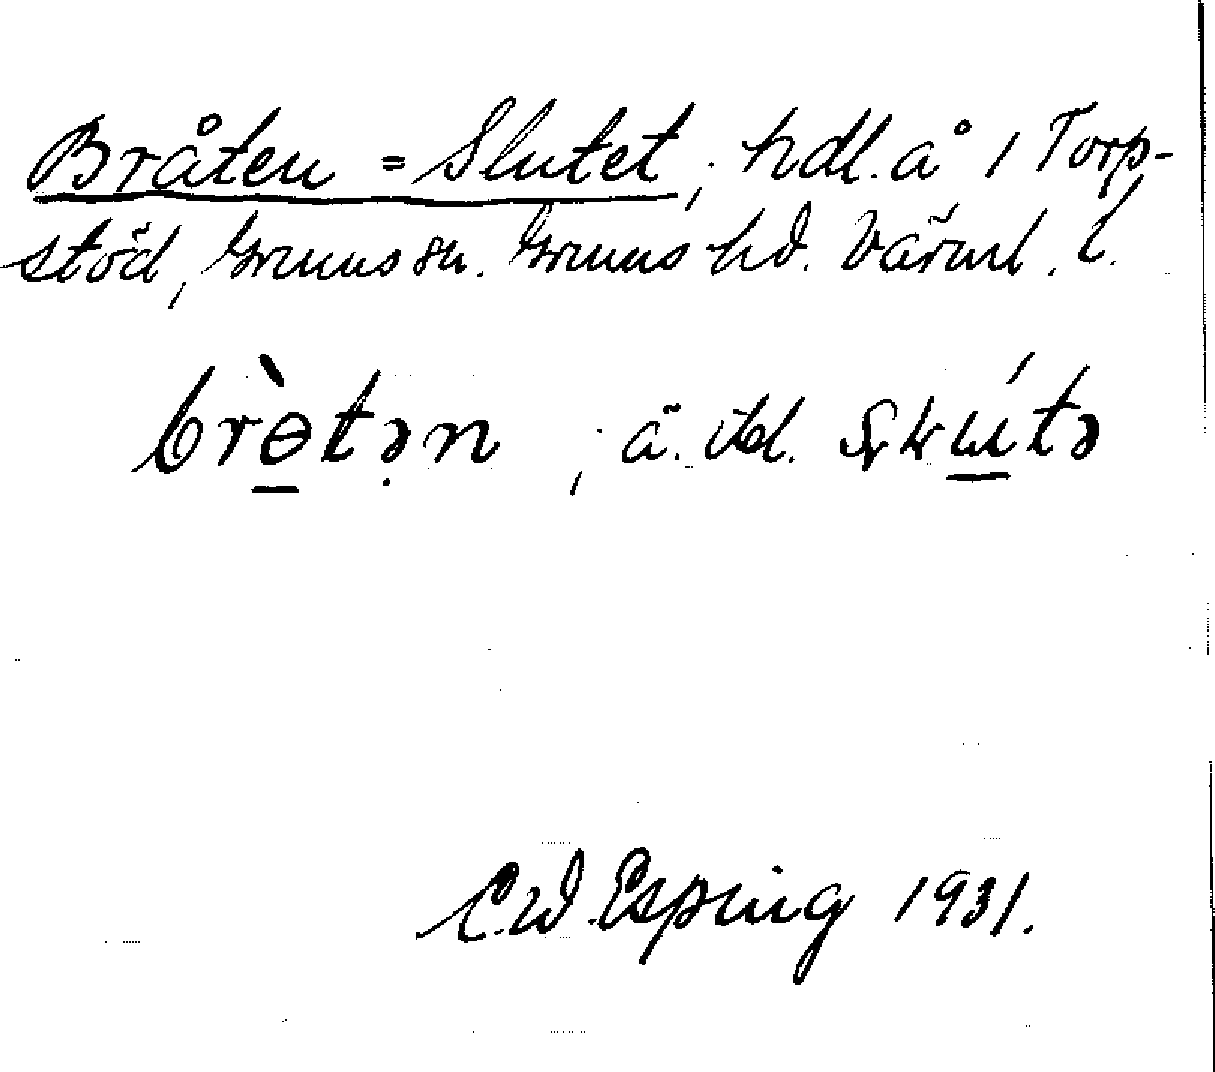 Bråten = Slutet, hdl. å 1 Torp-
stöd, Grums sn. Grums hd. Värml. l.
brètən, ä. ibl. skútə
C.W. Esping 1931.